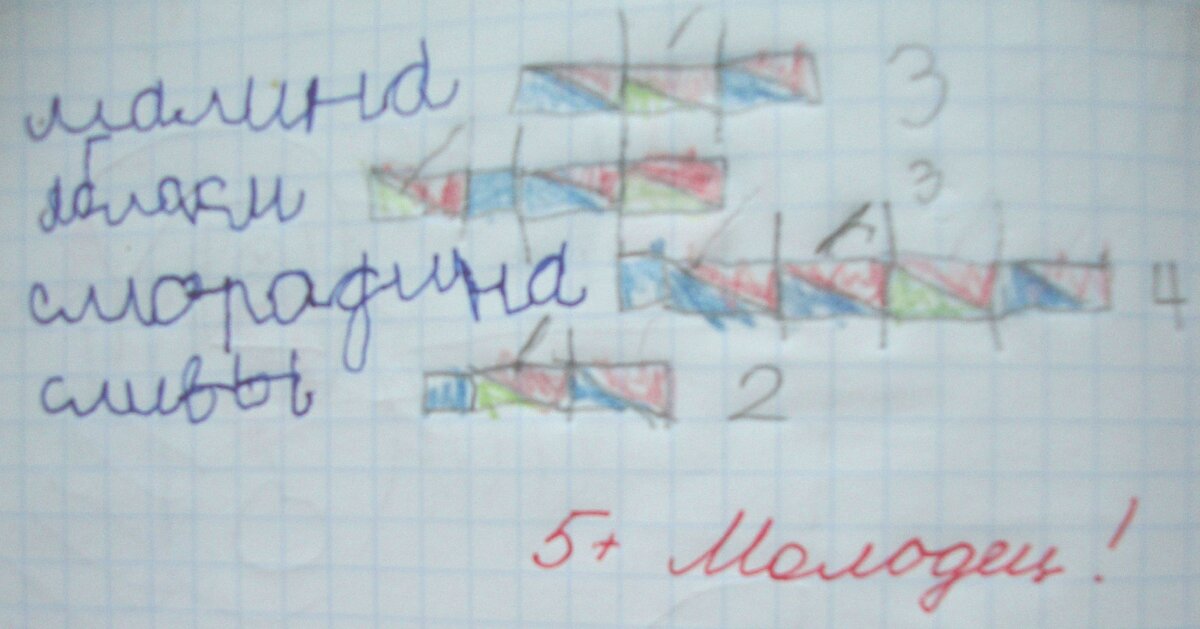 малина 3
яблоки 3
смородина 4
сливы 2
5+ Молодец!